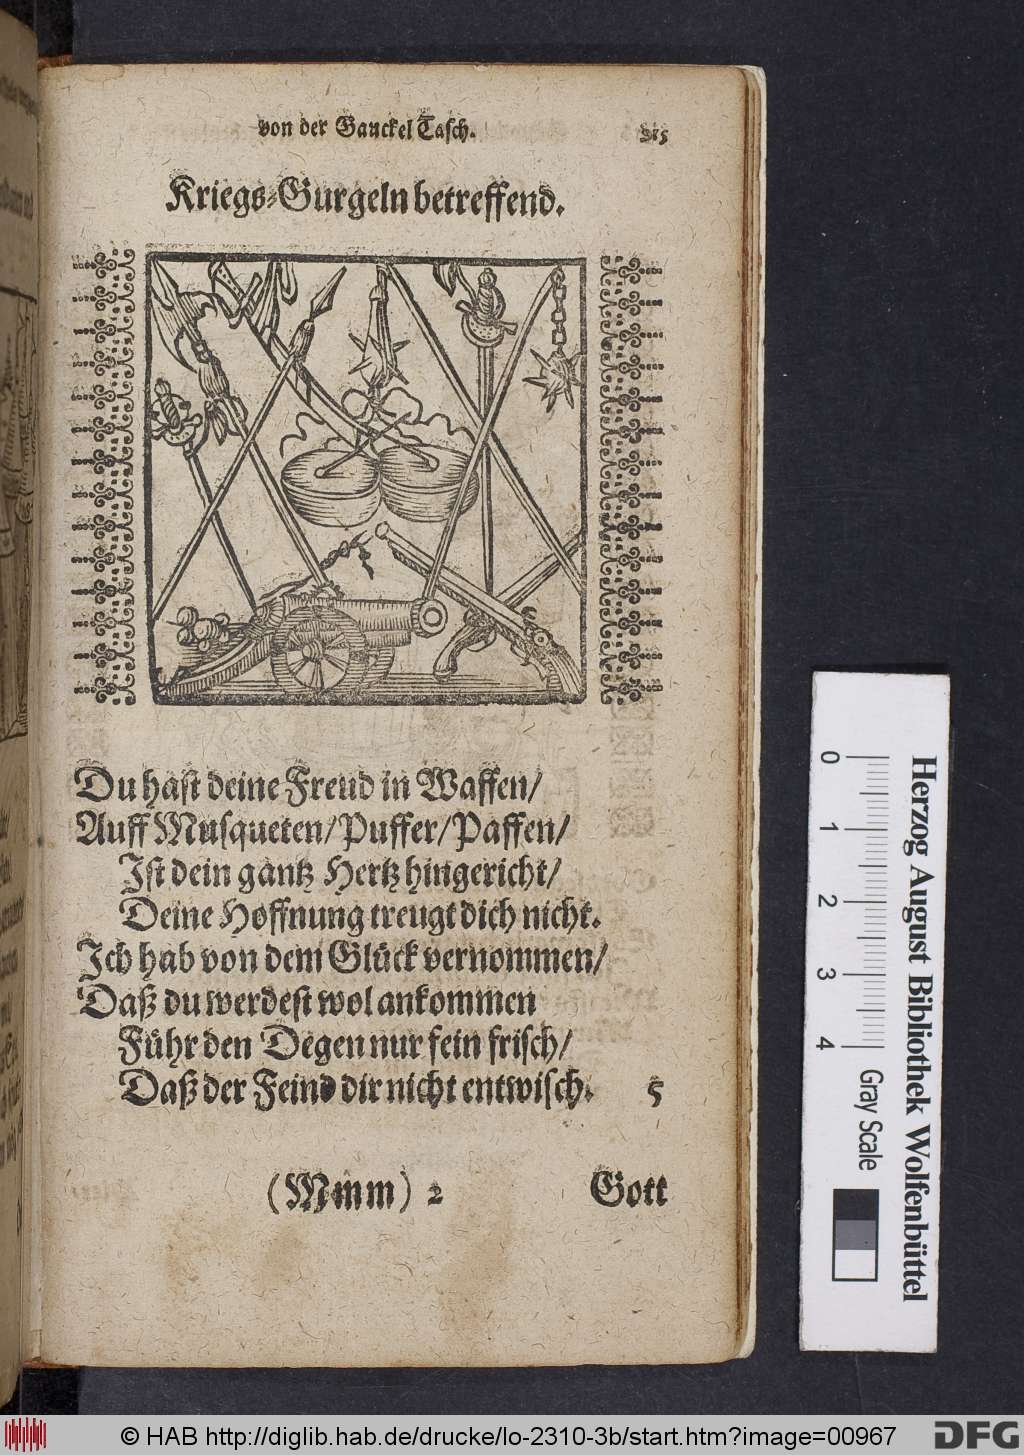 von der Gauckel Tasch.
Kriegs-Gurgeln betreffend.
Du hast deine Freud in Waffen/
Auff Musqueten/Puffer/Paffen/
Ist dein gantz Hertz hingericht/
Deine Hoffnung treugt dich nicht.
Ich hab von dem Glück vernommen/
Daß du werdest wol ankommen
Führ den Degen nur fein frisch/
Daß der Feind dir nicht entwisch. 5
(Mmm) 2 Gott
0 1 2 3 4 Gray Scale
Herzog August Bibliothek Wolfenbüttel
© HAB http://diglib.hab.de/drucke/lo-2310-3b/start.htm?image=00967
DFG